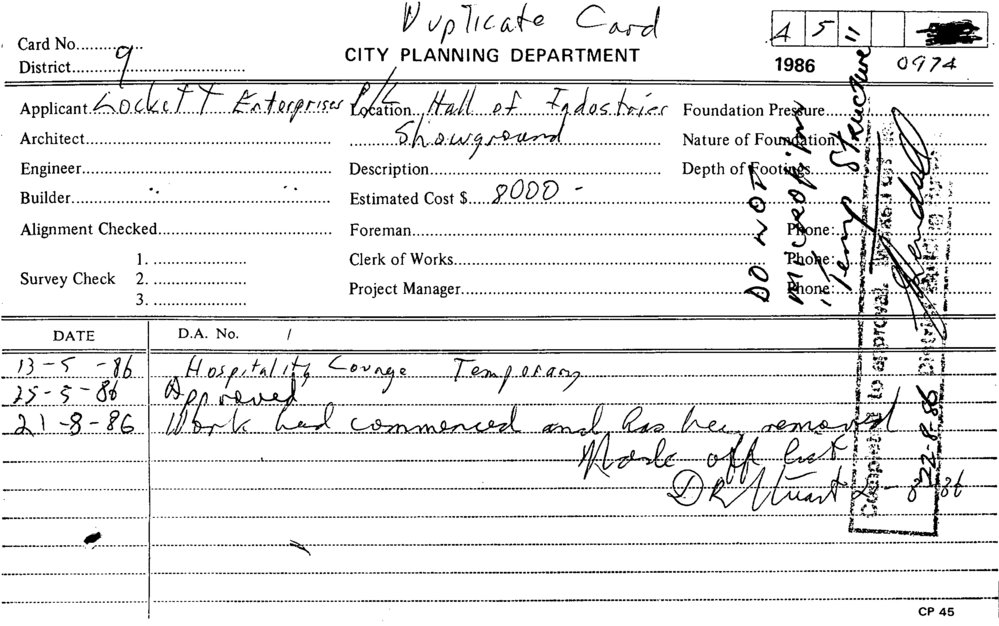 Duplicate Card
Card No.
CITY PLANNING DEPARTMENT
A 5
District 9
1986 0974
Applicant Lockett Enterprises P/L Location Hall of Industries Foundation Pressure
Architect Showground Nature of Foundation
Engineer Description Depth of Footings
Builder " " Estimated Cost $ 8000 -
Alignment Checked Foreman Phone:
Survey Check 1. 2. 3.
Clerk of Works Phone:
Project Manager Phone:
DO NOT
microfilm
"Temp STRUCTURE"
Completed to approval
Kendall
22-8-86
DATE D.A. No. /
13-5-86 Hospitality Lounge Temporary
25-5-86 Approved
21-8-86 Work had commenced and has been removed
DR Stuart
CP 45